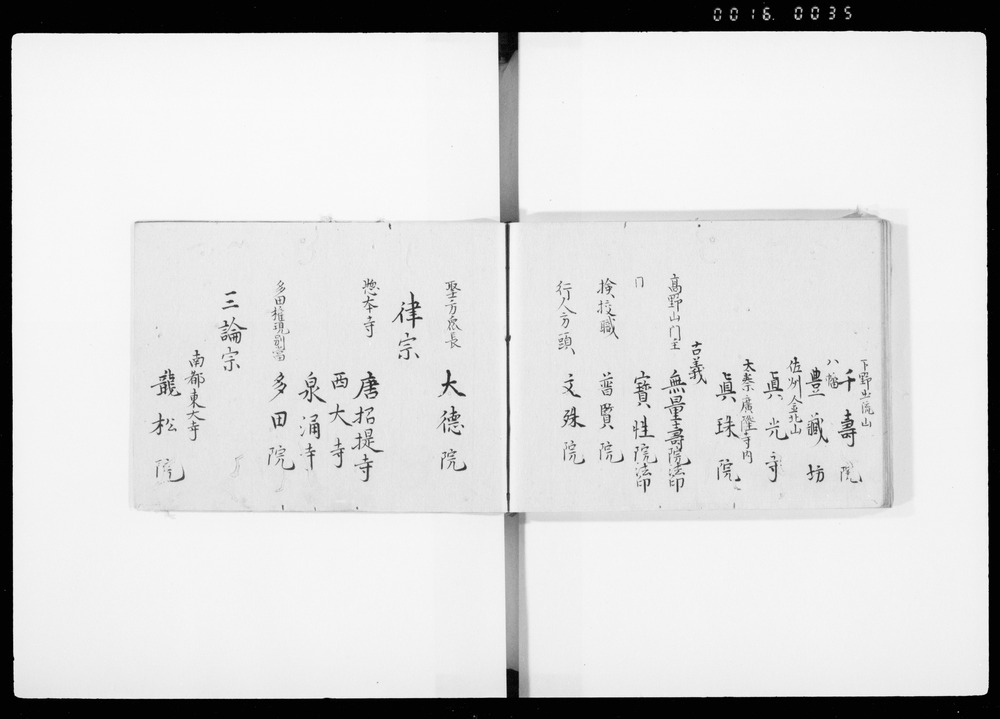 0016. 0035
下野出流山
千壽院
八幡
豊藏坊
佐州金北山
眞光寺
太秦廣隆寺内
眞珠院
古義
高野山門主
無量壽院法印
同
寶性院法印
検校職
普賢院
行人方頭
文殊院
聖方衆長
大德院
律宗
惣本寺
唐招提寺
西大寺
泉涌寺
多田権現別當
多田院
三論宗
南都東大寺
龍松院